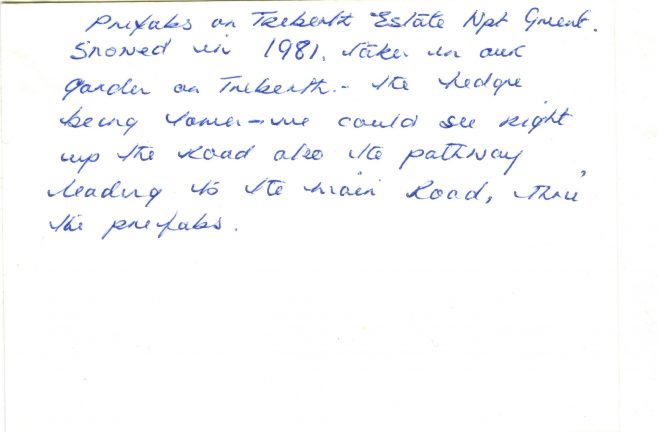 Prefabs on Treberth Estate Npt Gwent.
Snowed in 1981, taken in our
garden on Treberth.- the hedge
being lower - we could see right
up the road also the pathway
leading to the main Road, thru'
the prefabs.